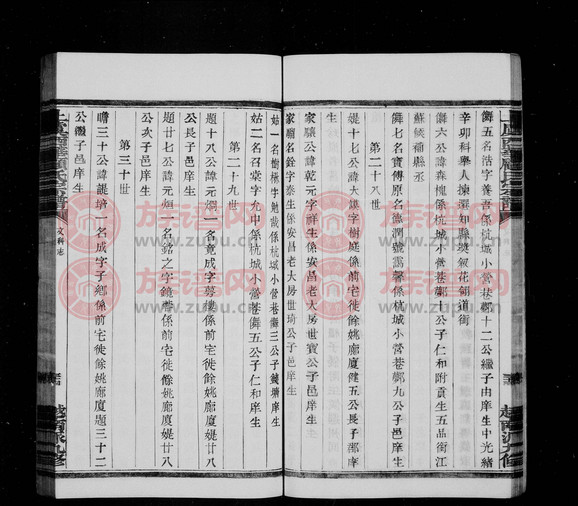 儛五名浩字善吾係杭城小營巷酈十二公繼子由庠生中光緒
辛卯科舉人揀選知縣獎敘花翎道銜
儛六公諱森槐係杭城小營巷酈七公子仁和附貢生五品銜江
蘇候補縣丞
儛七名寶傅原名德潤號露馨係杭城小營巷酈九公子邑庠生
第二十八世
媞十七公諱大鏞字樹庭係前宅徙餘姚廊廈健五公長子郡庠
生
家驤公諱乾元字祥生係安昌老大房世寶公子邑庠生
家驥名銓字泰生係安昌老大房世琦公子邑庠生
姑一名樹桺字勉哉係杭城小營巷儛三公子錢塘庠生
姑二名召棠字允中係杭城小營巷儛五公子仁和庠生
第二十九世
題十八公諱元烱一名堯成字夢樓係前宅徙餘姚廊廈媞廿八
公長子邑庠生
題廿七公諱元煩一名銘之字鏡蓉係前宅徙餘姚廊廈媞廿八
公次子邑庠生
第三十世
嚌三十公諱諟焙一名成字子鄉係前宅徙餘姚廊廈題三十二
公繼子邑庠生
文科志
族譜网
www.zupu.cn